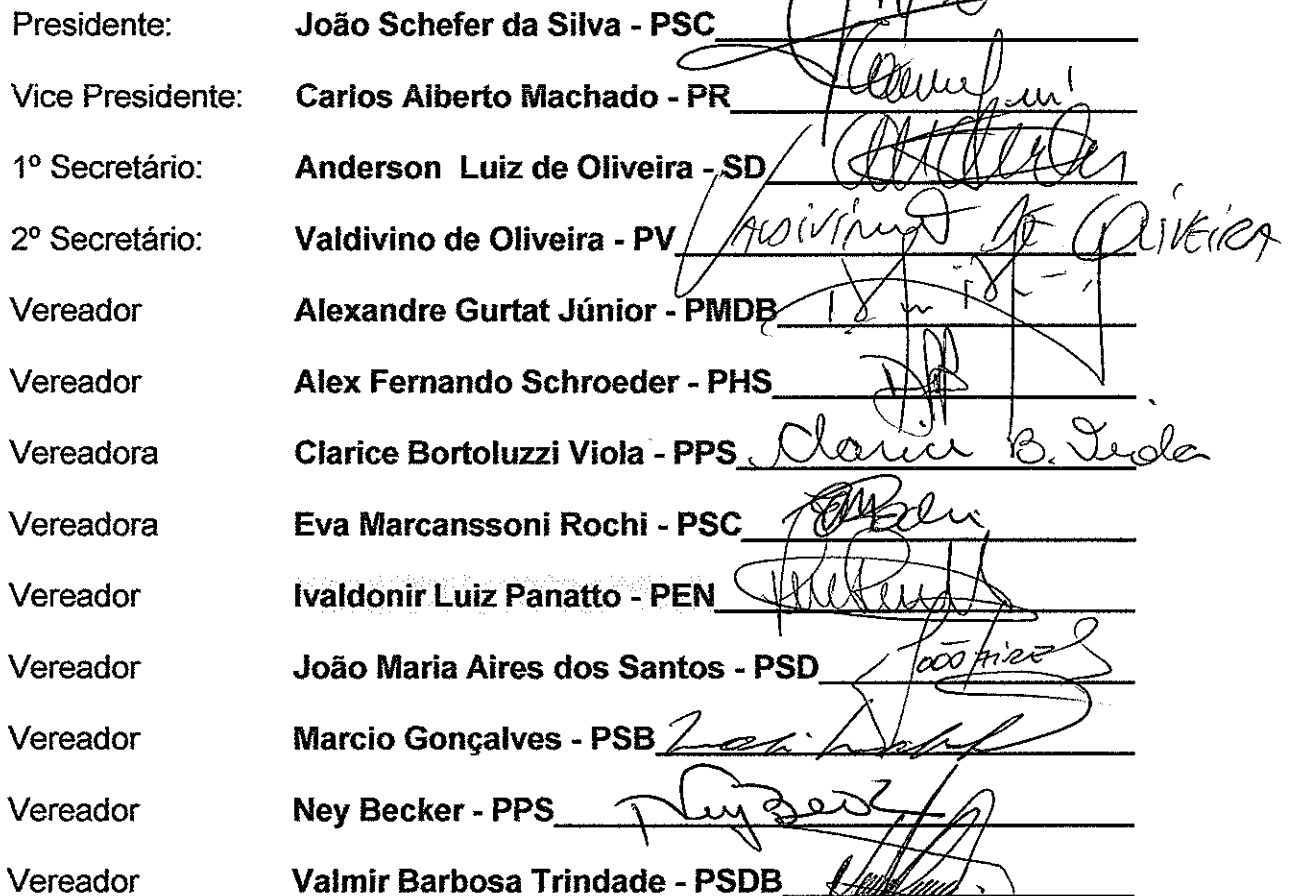 Presidente: João Schefer da Silva - PSC
Vice Presidente: Carlos Alberto Machado - PR
1º Secretário: Anderson Luiz de Oliveira - SD
2º Secretário: Valdivino de Oliveira - PV VALDIVINO DE OLIVEIRA
Vereador Alexandre Gurtat Júnior - PMDB
Vereador Alex Fernando Schroeder - PHS
Vereadora Clarice Bortoluzzi Viola - PPS Clarice B. Viola
Vereadora Eva Marcanssoni Rochi - PSC
Vereador Ivaldonir Luiz Panatto - PEN
Vereador João Maria Aires dos Santos - PSD João Aires
Vereador Marcio Gonçalves - PSB
Vereador Ney Becker - PPS Ney Becker
Vereador Valmir Barbosa Trindade - PSDB